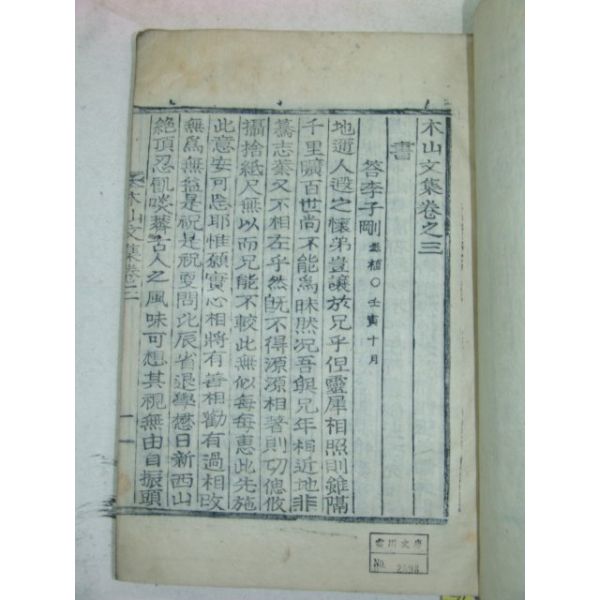 木山文集卷之三
書
答李子剛 基植○壬寅十月
地邇人遐之懷弟豈讓於兄乎但靈犀相照則雖隔
千里曠百世尚不能爲昧然况吾與兄年相近地非
蓦志業又不相左乎然旣不得源源相著則切偲攸
攝捨紙尺無以而兄能不較此無似每每惠此先施
此意安可忘耶惟願實心相將有善相勸有過相改
無爲無益是祝是祝更問此辰省退學懋日新西山
絶頂忍飢啖薺古人之風味可想其視無由自振頭
木山文集卷三
一
書川文庫
No. 2898